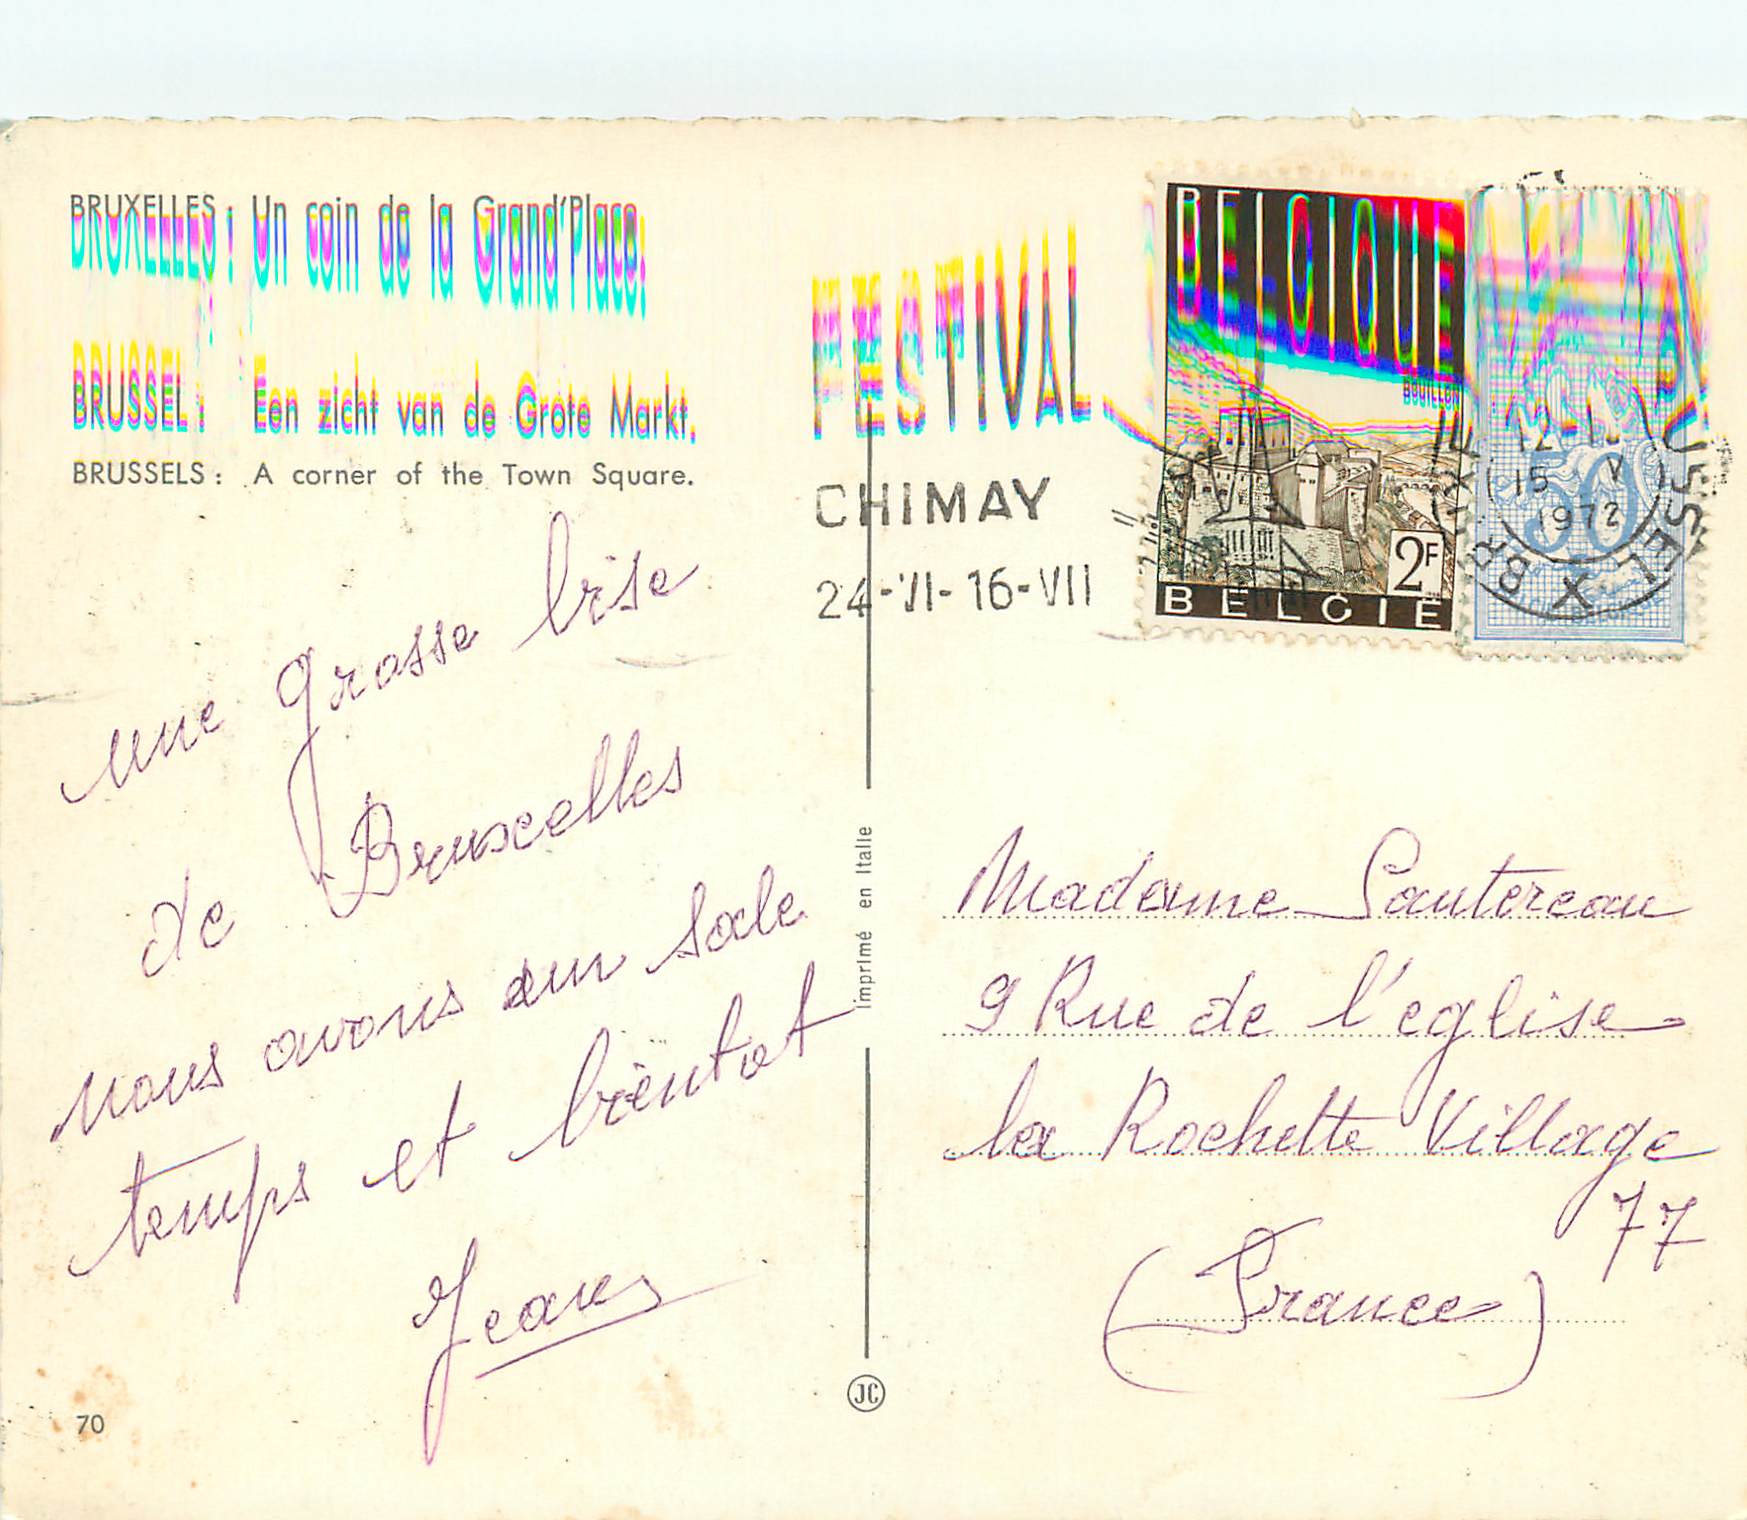 BRUXELLES : Un coin de la Grand'Place.
BRUSSEL : Een zicht van de Grote Markt.
BRUSSELS : A corner of the Town Square.
FESTIVAL
CHIMAY
24-VI-16-VII
BELGIQUE
BOUILLON
2F
BELGIE
50
15 V
1972
BRUXELLES X BRUSSEL
une grosse bise
de Bruxelles
nous avons un sale
temps et bientot
Imprimé en Italie
Madame Sautereau
9 Rue de l'eglise
la Rochette Village
77
(France)
70
JC